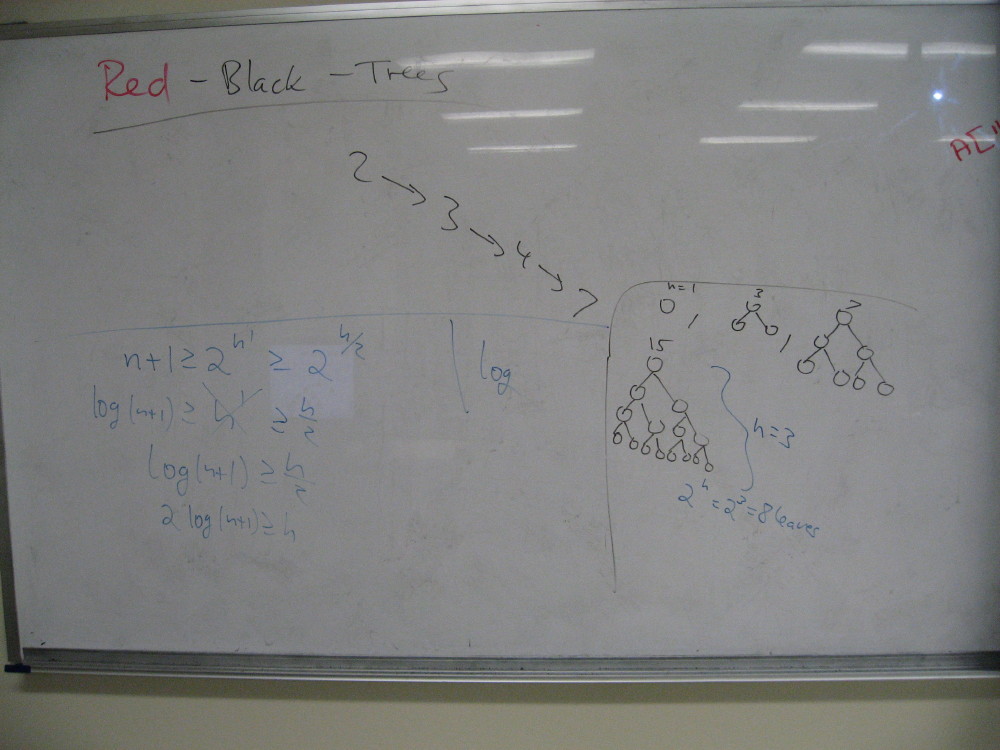 Red - Black - Trees
A["
2 → 3 → 4 → 7
n+1 ≥ 2^h' ≥ 2^h/2
log(n+1) ≥ h' ≥ h/2
log(n+1) ≥ h/2
2 log(n+1) ≥ h
log
n=1
3
7
15
h=3
2^h = 2^3 = 8 leaves